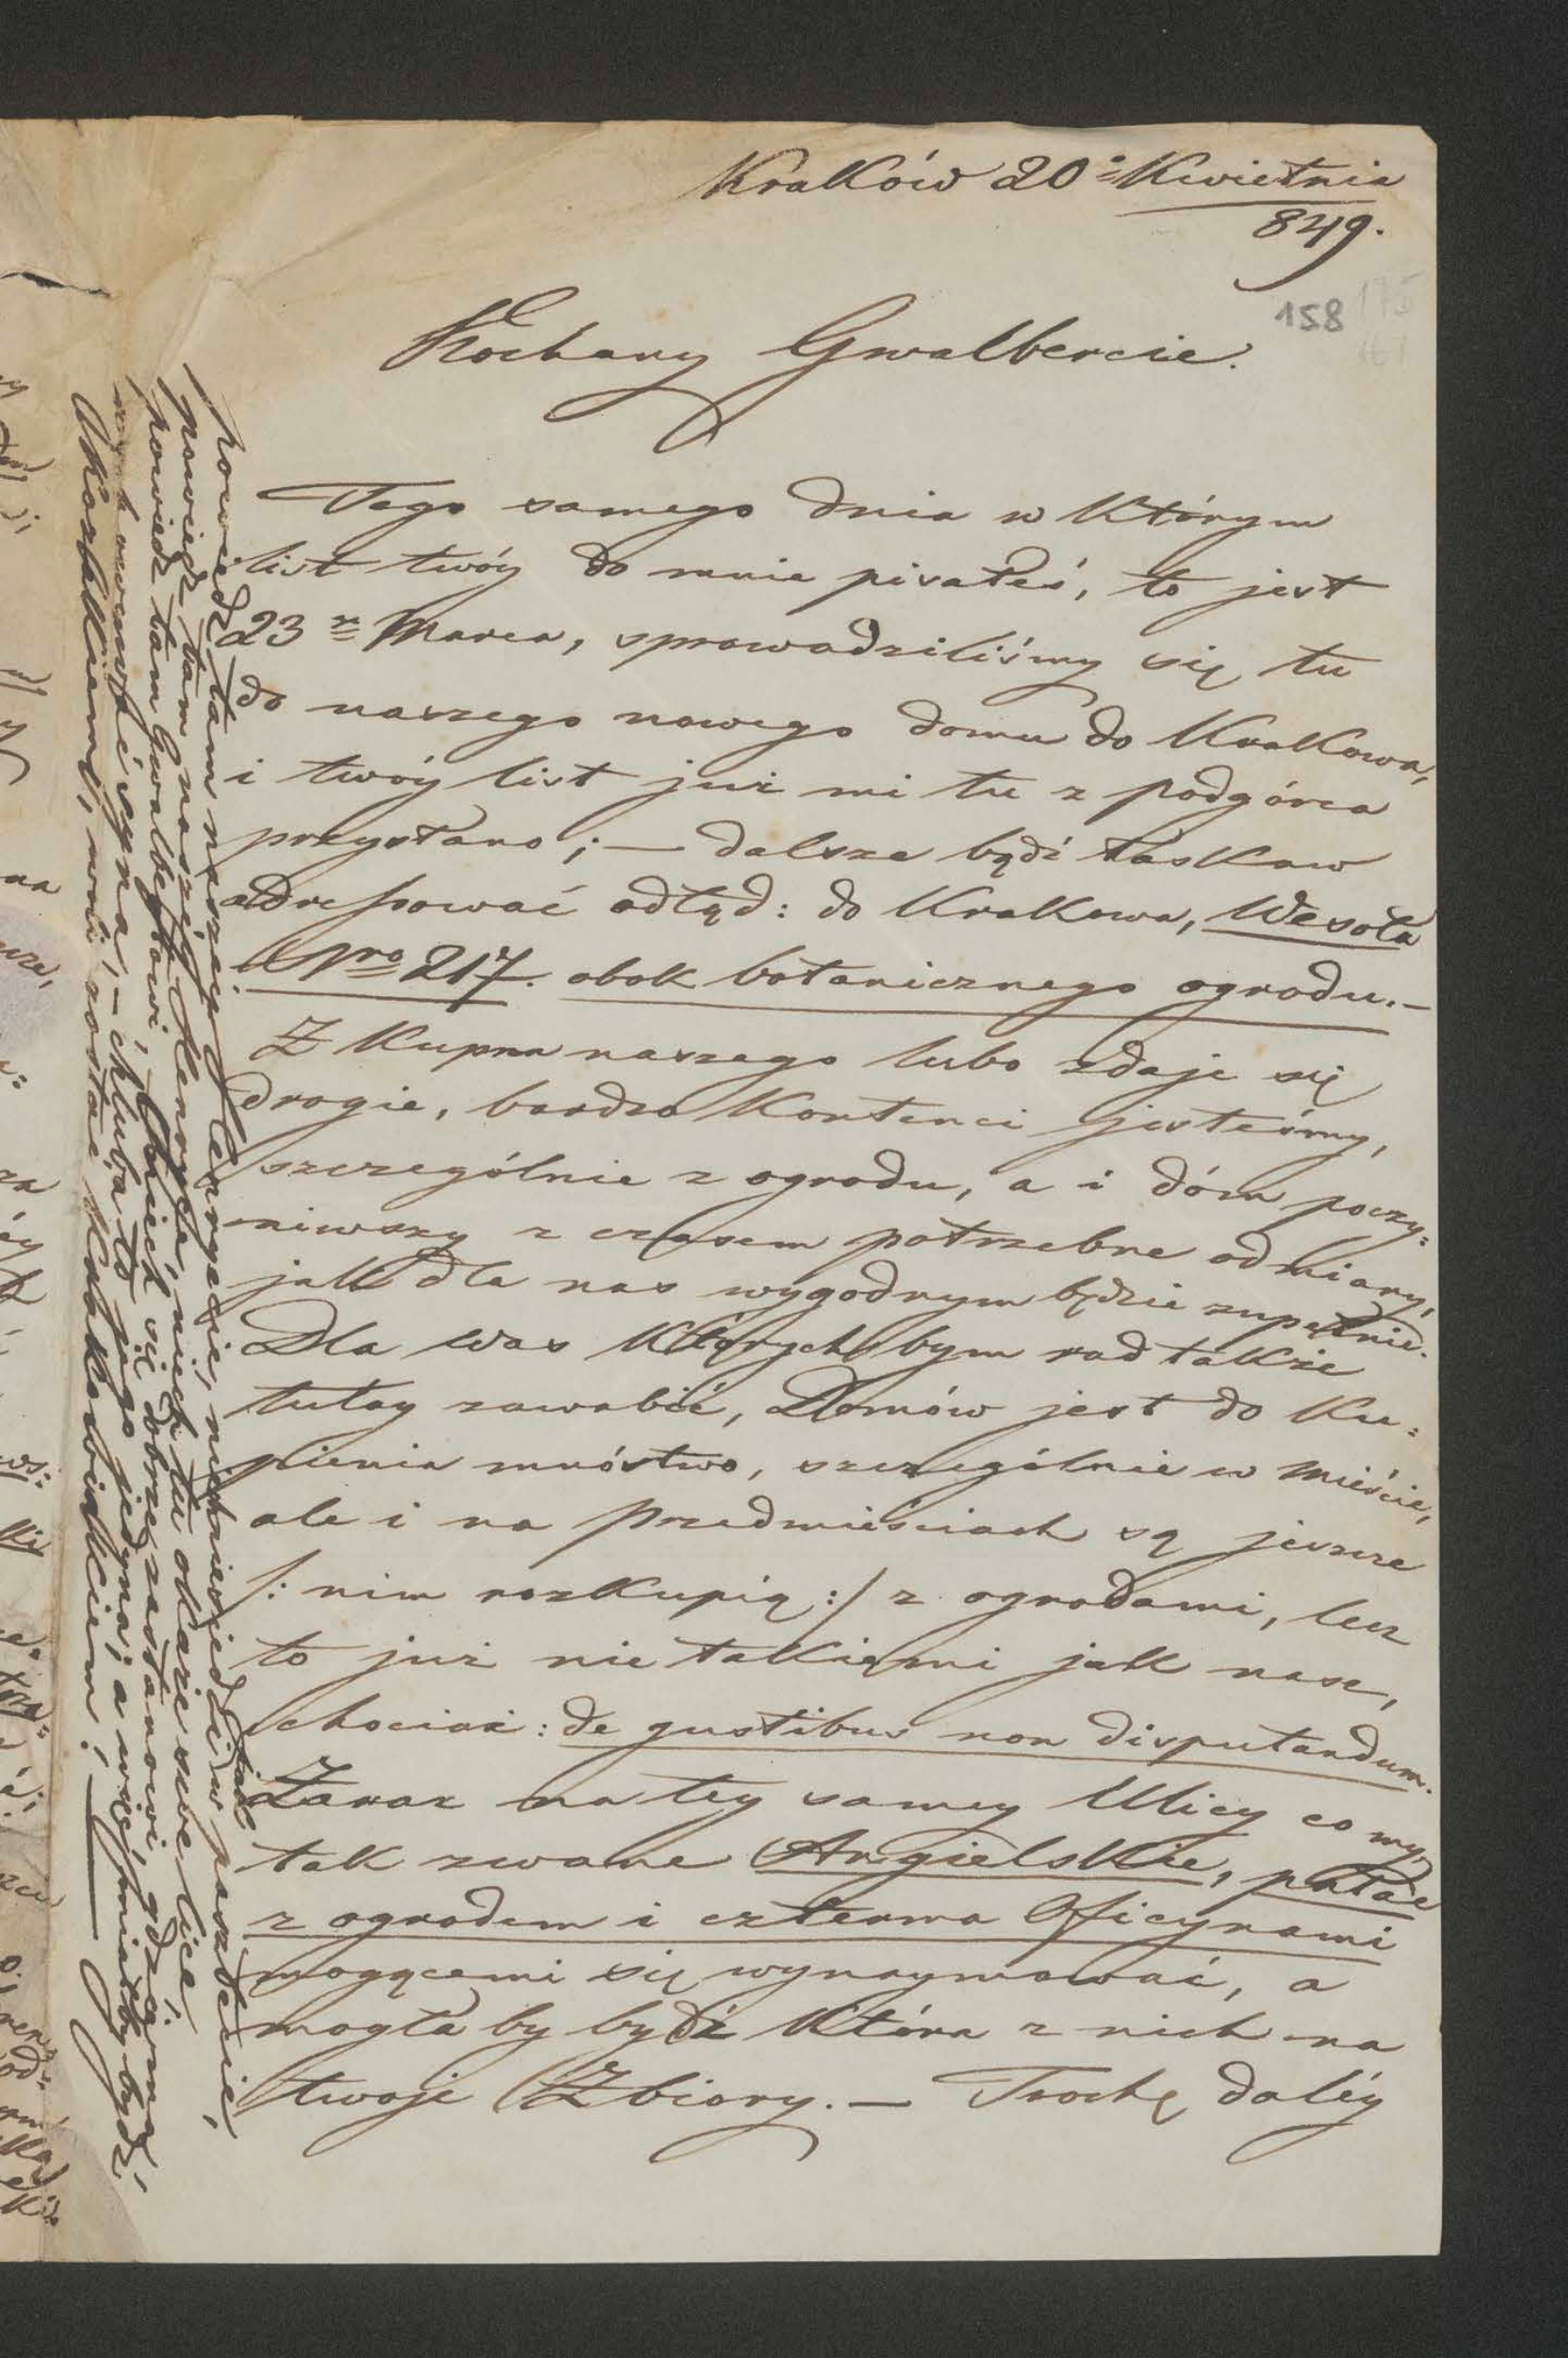 Kraków 20º Kwietnia
849.
158
Kochany Gwalbercie.
Tego samego dnia w którym
list twóy do mnie pisałeś, to jest
23 Marca, sprowadziliśmy się tu
do naszego nowego domu do Krakowa,
i twóy list już mi tu z podgórza
przysłano; — dalsze bądź łaskaw
adressować odtąd: do Krakowa, Wesoła
Nro 217. obok botanicznego ogrodu. —
Z kupna naszego lubo zdaje się
drogie, bardzo kontenci jesteśmy,
szczególnie z ogrodu, a i dóm poczy=
niwszy z czasem potrzebne odmiany,
jak dla nas wygodnym będzie zupełnie.
Dla was których bym rad także
tutay zwabić, Domów jest do ku=
pienia mnóstwo, szczególnie w mieście,
ale i na przedmieściach są jeszcze
/: nim rozkupią :/ z ogrodami, lecz
to już nie takiemi jak nasz,
chociaż: de gustibus non disputandum.
Zaraz na tey samey Ulicy co my,
tak zwane Angielskie, pałac
z ogrodem i czterma Oficynami
mogącemi się wynaymować, a
mogła by bydź która z nich na
twoje Zbiory. — Trochę daléy
powiedz tam naszéy, niech nie siedzi w jak
powiedz tam naszéy Henrysi, niech tu okaże swe lice,
powiedz tam Gwalbertowi, Niech się dobrze zastanowi, gdzie
syna, — chluba to jego jedyna; a więc miałby bydź
woli zostać